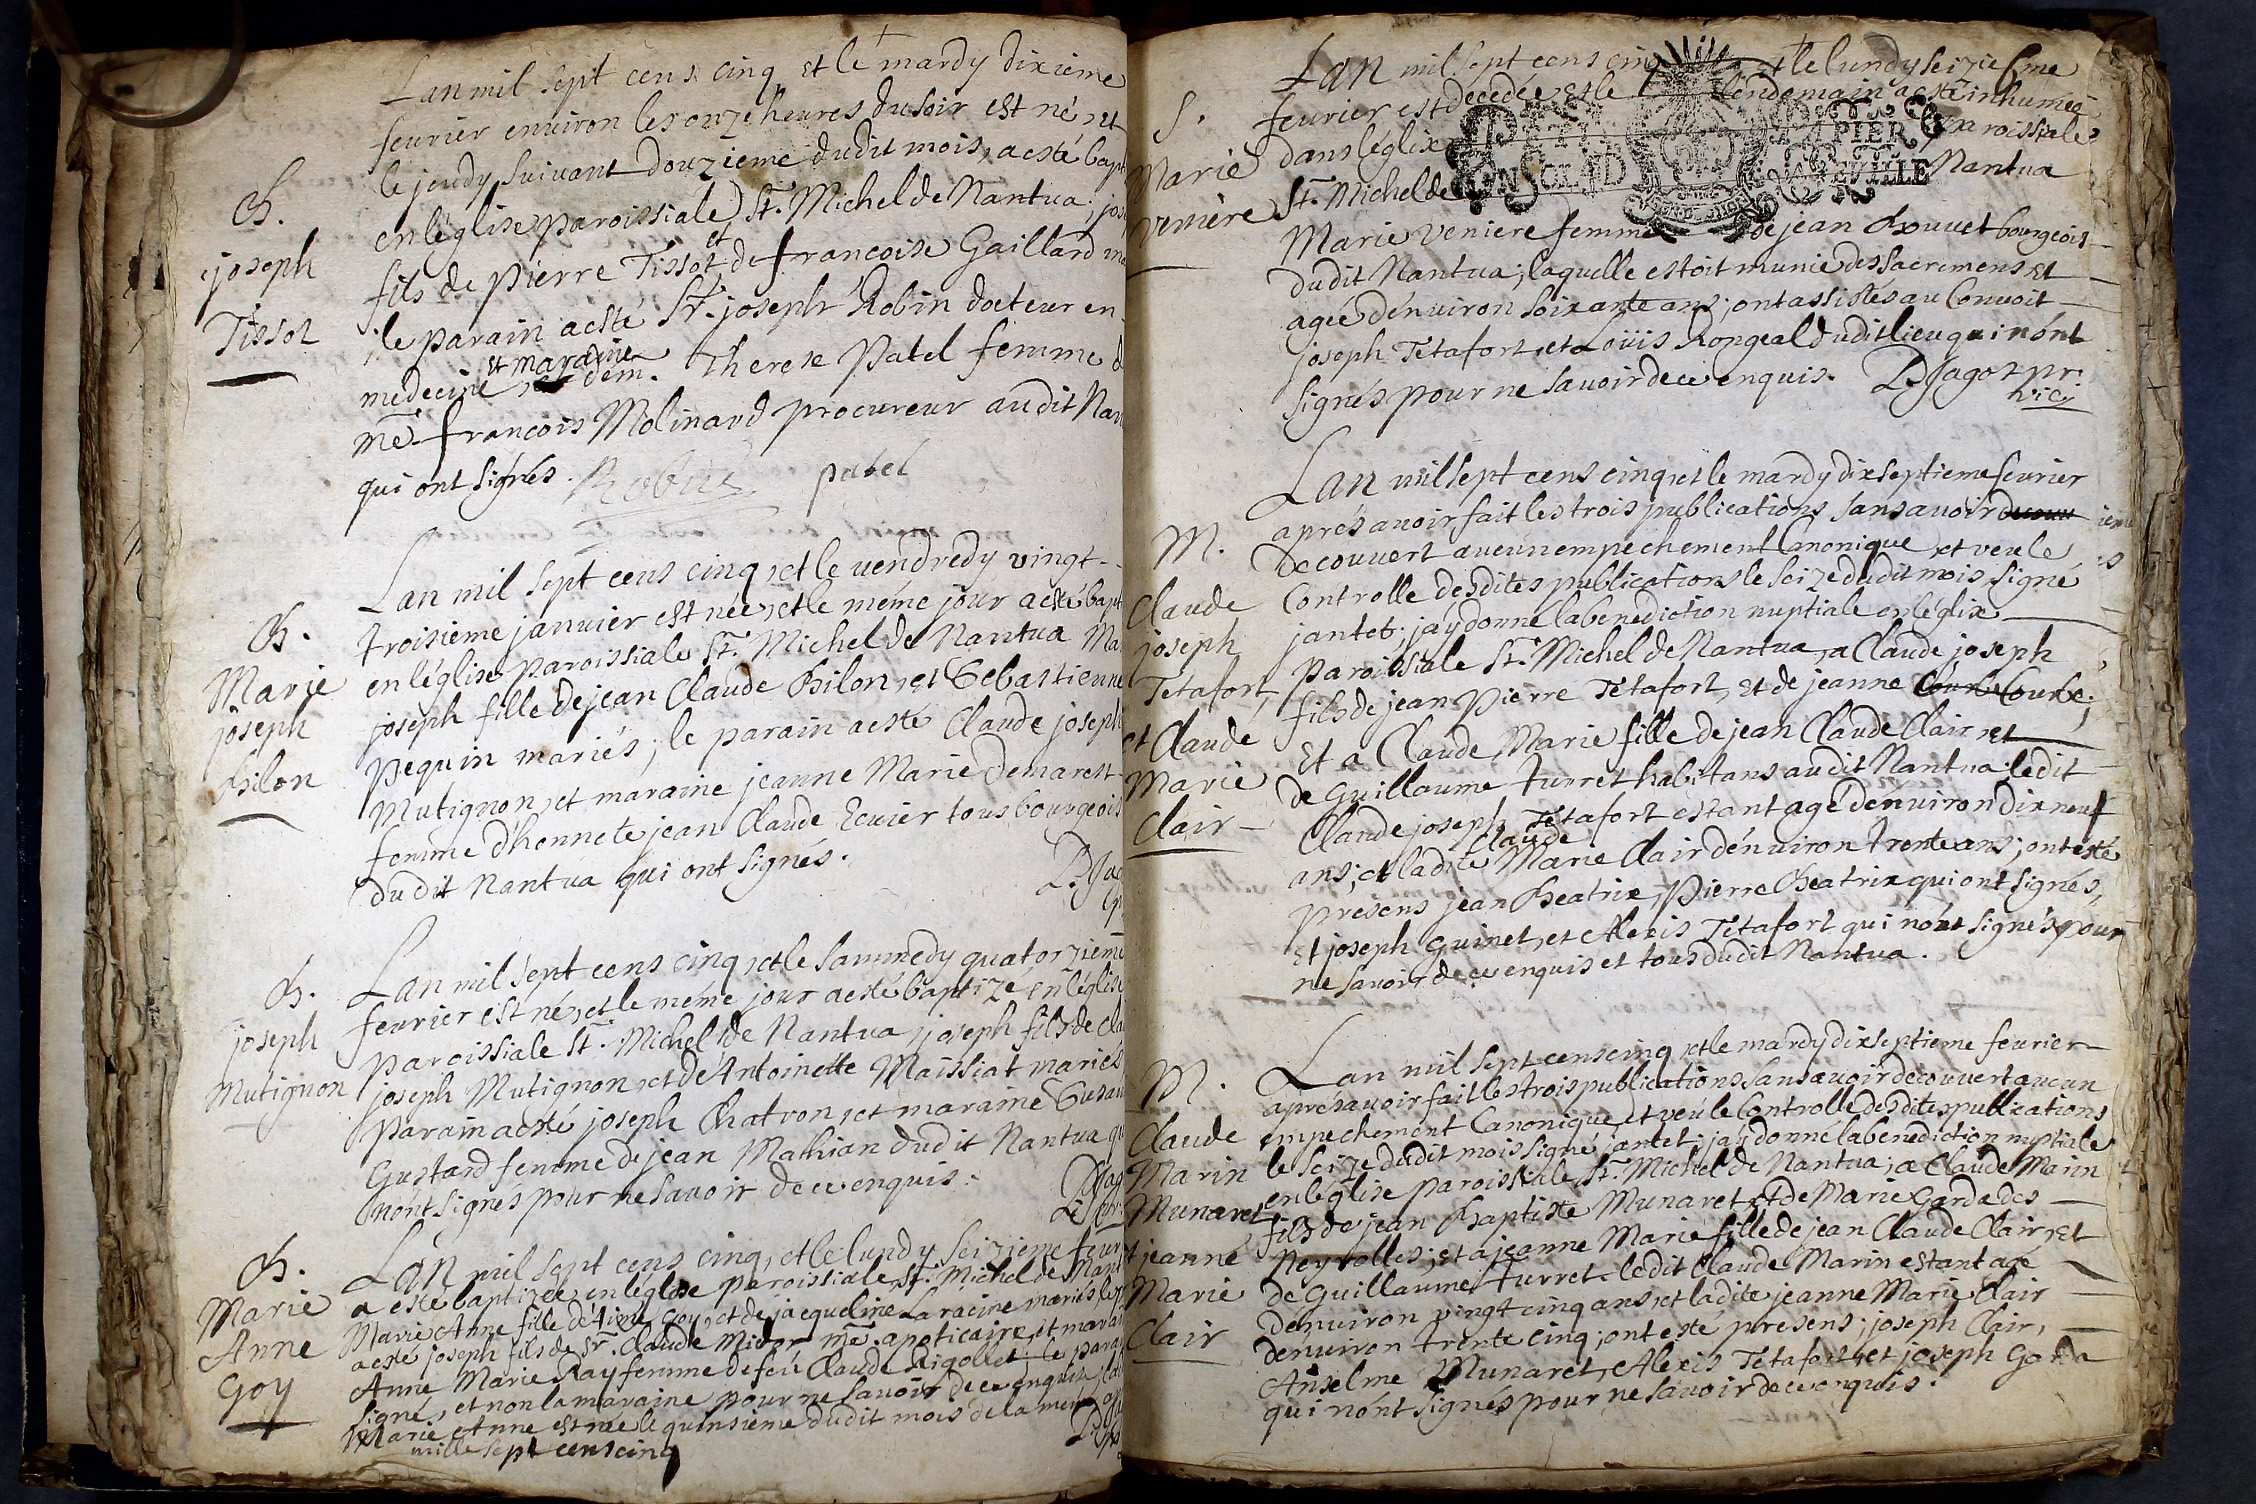 Lan mil sept cens cinq et le mardy dixieme
feurier enuiron les onze heures du soir est né, et
le jeudy suiuant douzieme dudit mois, a esté bapt
B.
en léglise paroissiale St. Michel de Nantua, jos
joseph
fils de pierre Tissot et de francoise Gaillard ma
Tissot
le parain a esté Sr. joseph Robin docteur en
medecine, et maraine dem. Therese Patel femme d
me. francois Molinard procureur audit Nan
qui ont signés. Robin patel
Lan mil sept cens cinq, et le uendredy vingt-
B.
troisieme januier est née, et le méme jour a esté bapt
Marie
en léglise paroissiale St. Michel de Nantua Ma
joseph
joseph fille de jean Claude Bilon, et Sebastienne
Bilon
Pequin mariés; le parain a esté Claude joseph
Mutignon, et maraine jeanne Marie Demarest
femme d'honnete jean Claude Ecuier tous bourgeois
dudit Nantua qui ont signés.
Lan mil sept cens cinq, et le sammedy quatorzieme
B.
feurier est né, et le méme jour a esté baptizé en léglise
joseph
paroissiale St. Michel de Nantua, joseph fils de Cla
Mutignon
joseph Mutignon, et de Antoinette Maissiat mariés
parain a esté joseph Chatron, et maraine Susan
Gustard femme de jean Mathian dudit Nantua qu
n'ont signés pour ne sauoir de ce enquis.
B.
Lan mil sept cens cinq, et le lundy seizieme feur
Marie
a esté baptizée en léglise paroissiale St. Michel de Nant
Anne
Marie Anne fille de Aimé Goy, et de jacqueline Laracine mariés, le p
Goy
a esté joseph fils de Sr. Claude Midor me. apoticaire, et marai
Anne Marie Ray femme de feu Claude Rigollet; le para
signé, et non la maraine pour ne sauoir de ce enquis, lad
Marie Anne est née le quinsieme dudit mois de la méme
mille sept cens cinq
Lan mil sept cens cinq et le lundy seizieme
S.
feurier est decedée et le lendemain a esté inhumée
Marie
dans léglise paroissiale
Veniere
St. Michel de Nantua
PETIT PAPIER
Marie Veniere femme de jean Bouuet bourgeois
dudit Nantua; laquelle estoit munie des sacremens et
agée denuiron soixante ans; ont assistés au Conuoit
joseph Tétafort, et Loüis Rongeal dudit lieu qui n'ont
signés pour ne sauoir de ce enquis. Jagot pr.
vic.
Lan mil sept cens cinq, et le mardy dix septieme feurier
aprés auoir fait les trois publications sans auoir
M.
decouuert aucun empechement Canonique, et veu le
Claude
Controlle desdites publications le seize dudit mois signé
joseph
jantet. j'aÿ donné la benediction nuptiale en léglise
Tetafort,
paroissiale St. Michel de Nantua, a Claude joseph
et Claude
fils de jean Pierre Tétafort, et de jeanne Courbe;
Marie
Et a Claude Marie fille de jean Claude Clair, et
Clair
de Guillaume turret habitans audit Nantua. ledit
Claude joseph Tétafort estant agé denuiron dix neuf
ans, et ladite Claude Marie Clair dénuiron trente ans; ont esté
presens jean Beatrix, Pierre Beatrix qui ont signés,
Et joseph Guinet, et Alexis Tétafort qui n'ont signés pour
ne sauoir de ce enquis et tous dudit Nantua.
Lan mil sept cens cinq, et le mardy dix septieme feurier
M.
aprés auoir fait les trois publications sans auoir decouuert aucun
Claude
empechement Canonique, et veu le Controlle desdites publications
Marin
le seize dudit mois signé jantet. j'aÿ donné la benediction nuptiale
Munaret
en léglise paroissiale St. Michel de Nantua, a Claude Marin
fils de jean Baptiste Munaret, et de Marie Garde des
et jeanne
Neyrolles; et a jeanne Marie fille de jean Claude Clair, et
Marie
de Guillaume turret. ledit Claude Marin estant agé
Clair
denuiron vingt cinq ans, et ladite jeanne Marie Clair
dénuiron trente cinq; ont esté presens; joseph Clair,
Anselme Munaret, Alexis Tétafort, et joseph Garda
qui n'ont signés pour ne sauoir de ce enquis.